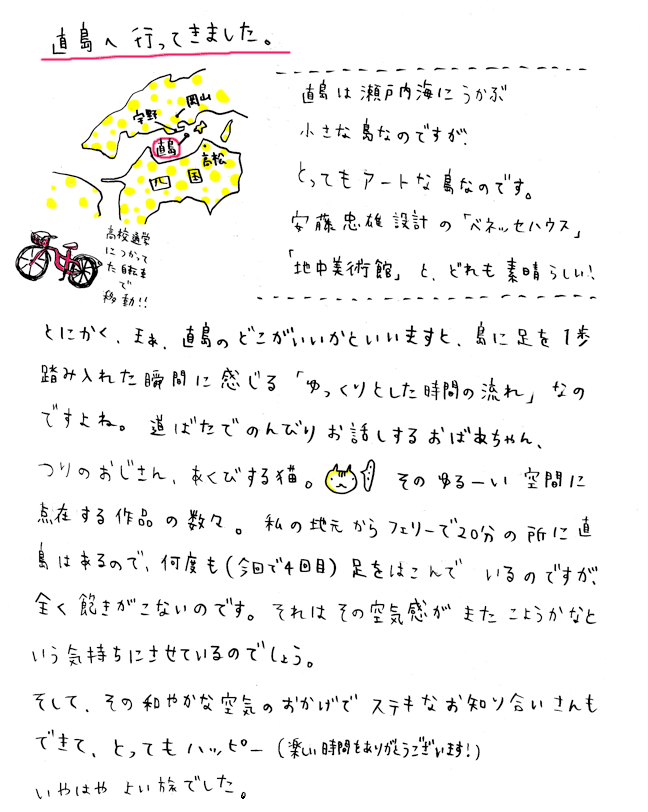 直島へ行ってきました。
岡山
宇野
直島
高松
四国
高校通学
につかって
た自転車
で
移動!!
直島は瀬戸内海にうかぶ
小さな島なのですが、
とってもアートな島なのです。
安藤忠雄設計の「ベネッセハウス」
「地中美術館」と、どれも素晴らしい!
とにかく、まぁ、直島のどこがいいかといいますと、島に足を1歩
踏み入れた瞬間に感じる「ゆっくりとした時間の流れ」なの
ですよね。道ばたでのんびりお話しするおばあちゃん、
つりのおじさん、あくびする猫。そのゆるーい空間に
点在する作品の数々。私の地元からフェリーで20分の所に直
島はあるので、何度も(今回で4回目)足をはこんでいるのですが、
全く飽きがこないのです。それはその空気感がまたこようかなと
いう気持ちにさせているのでしょう。
そして、その和やかな空気のおかげでステキなお知り合いさんも
できて、とってもハッピー(楽しい時間をありがとうございます!)
いやはやよい旅でした。